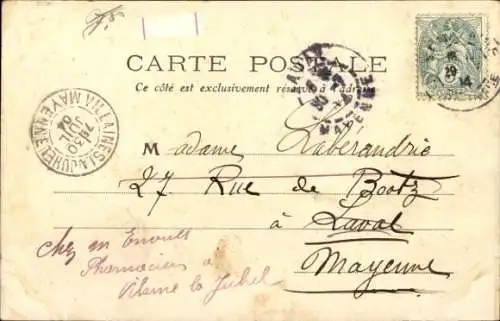 CARTE POSTALE
Ce côté est exclusivement réservé à l'adresse
Madame Laverandrie
27 Rue de Bootz
à Laval
Mayenne
Chez m
Pharmacien à
Vilaine la Juhel
VILLAINES-LA-JUHEL
7H30
MAYENNE